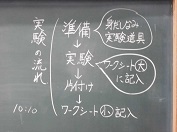 実験の流れ
準備
身だしなみ
実験道具
↓
実験
ワークシート大
に記入
↓
片付け
↓
ワークシート小記入
10:10